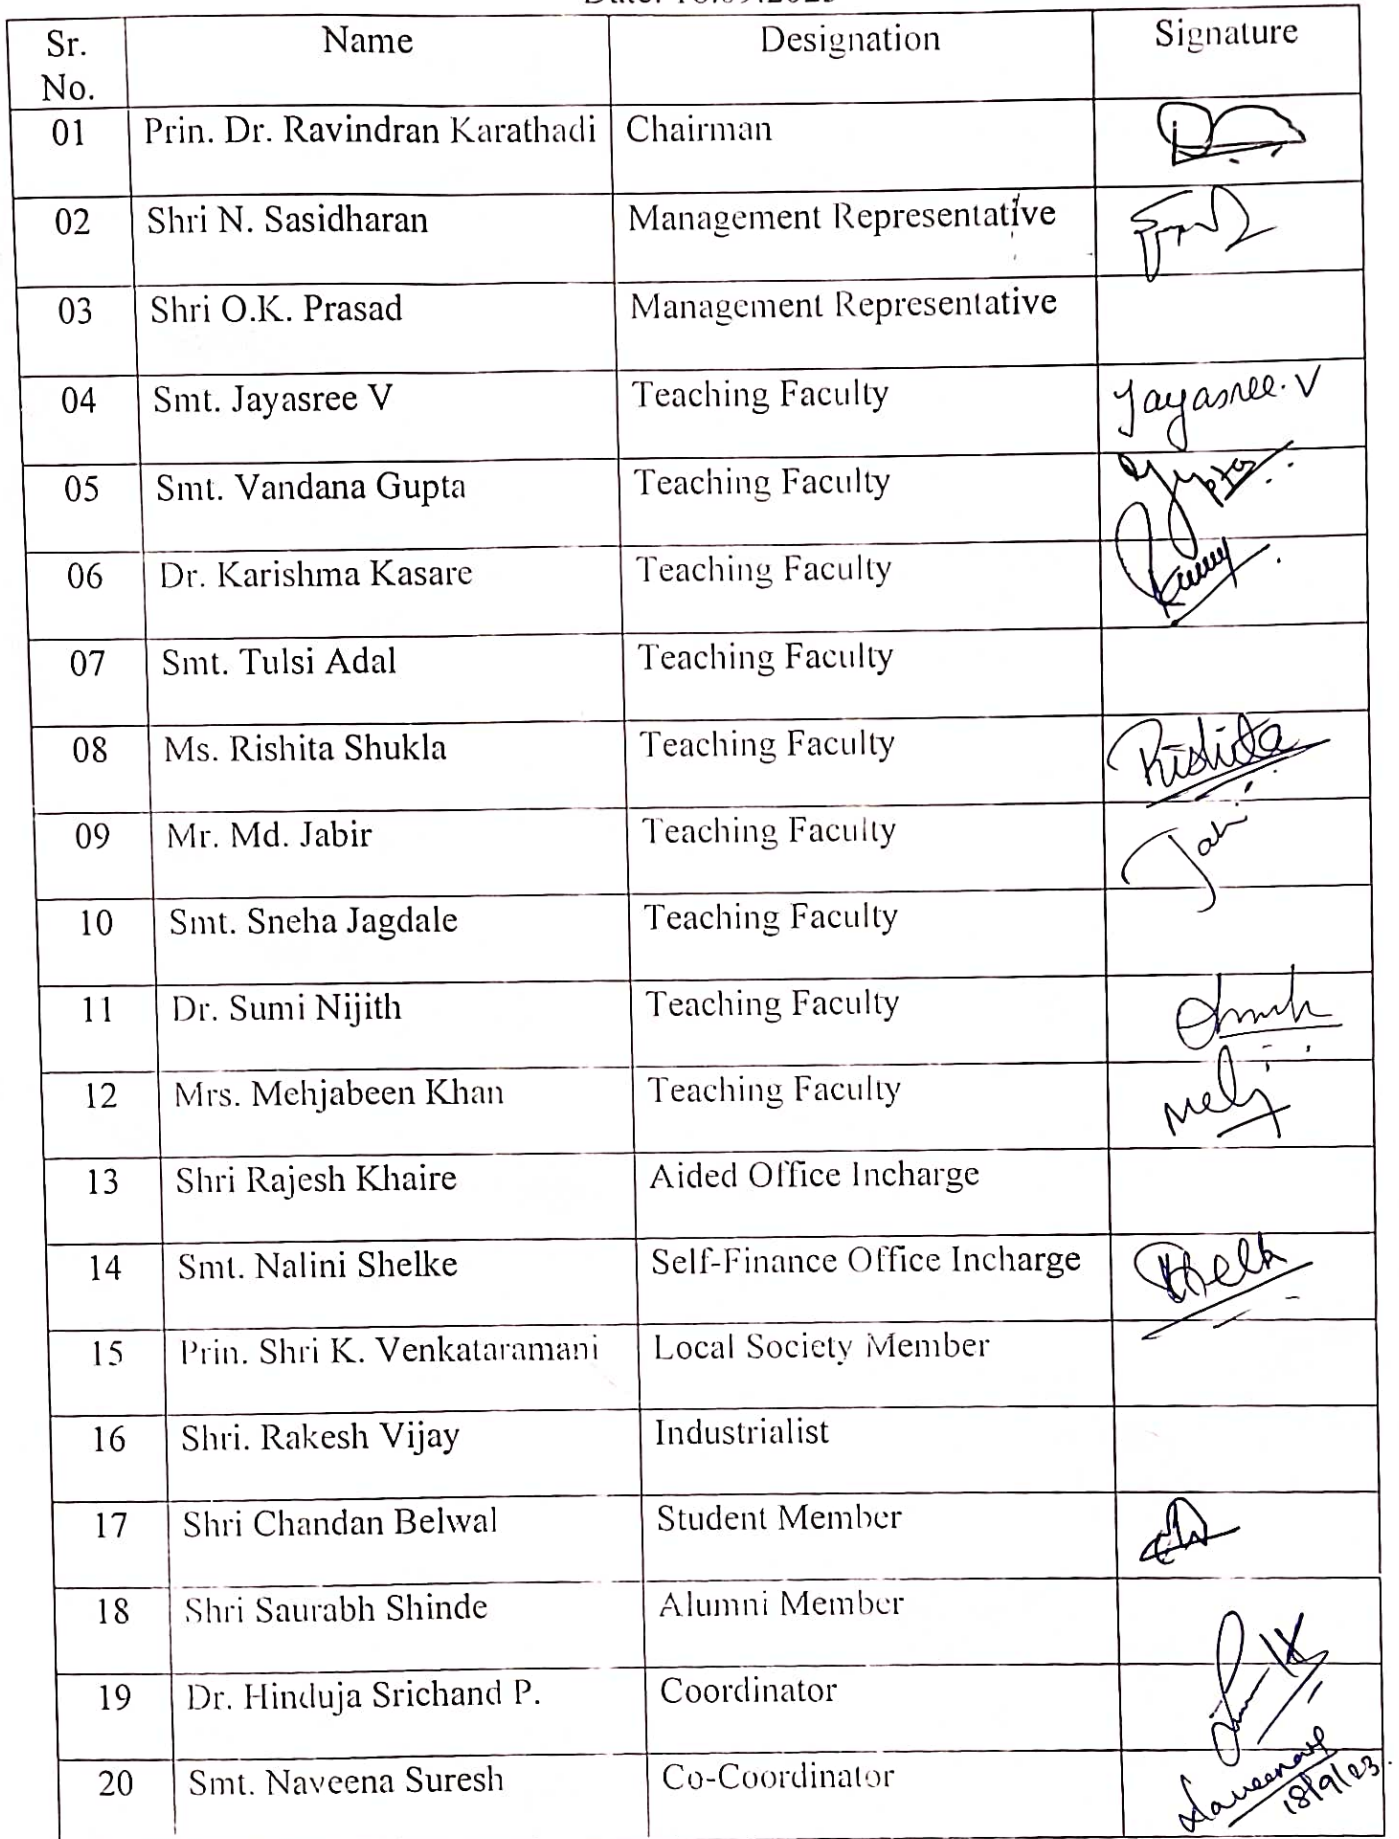 Date: 18.09.2023
Sr. No. Name Designation Signature
01 Prin. Dr. Ravindran Karathadi Chairman
02 Shri N. Sasidharan Management Representative
03 Shri O.K. Prasad Management Representative
04 Smt. Jayasree V Teaching Faculty Jayasree.V
05 Smt. Vandana Gupta Teaching Faculty Gupta
06 Dr. Karishma Kasare Teaching Faculty
07 Smt. Tulsi Adal Teaching Faculty
08 Ms. Rishita Shukla Teaching Faculty Rishita
09 Mr. Md. Jabir Teaching Faculty
10 Smt. Sneha Jagdale Teaching Faculty
11 Dr. Sumi Nijith Teaching Faculty
12 Mrs. Mehjabeen Khan Teaching Faculty
13 Shri Rajesh Khaire Aided Office Incharge
14 Smt. Nalini Shelke Self-Finance Office Incharge
15 Prin. Shri K. Venkataramani Local Society Member
16 Shri. Rakesh Vijay Industrialist
17 Shri Chandan Belwal Student Member
18 Shri Saurabh Shinde Alumni Member
19 Dr. Hinduja Srichand P. Coordinator
20 Smt. Naveena Suresh Co-Coordinator
18/9/23.